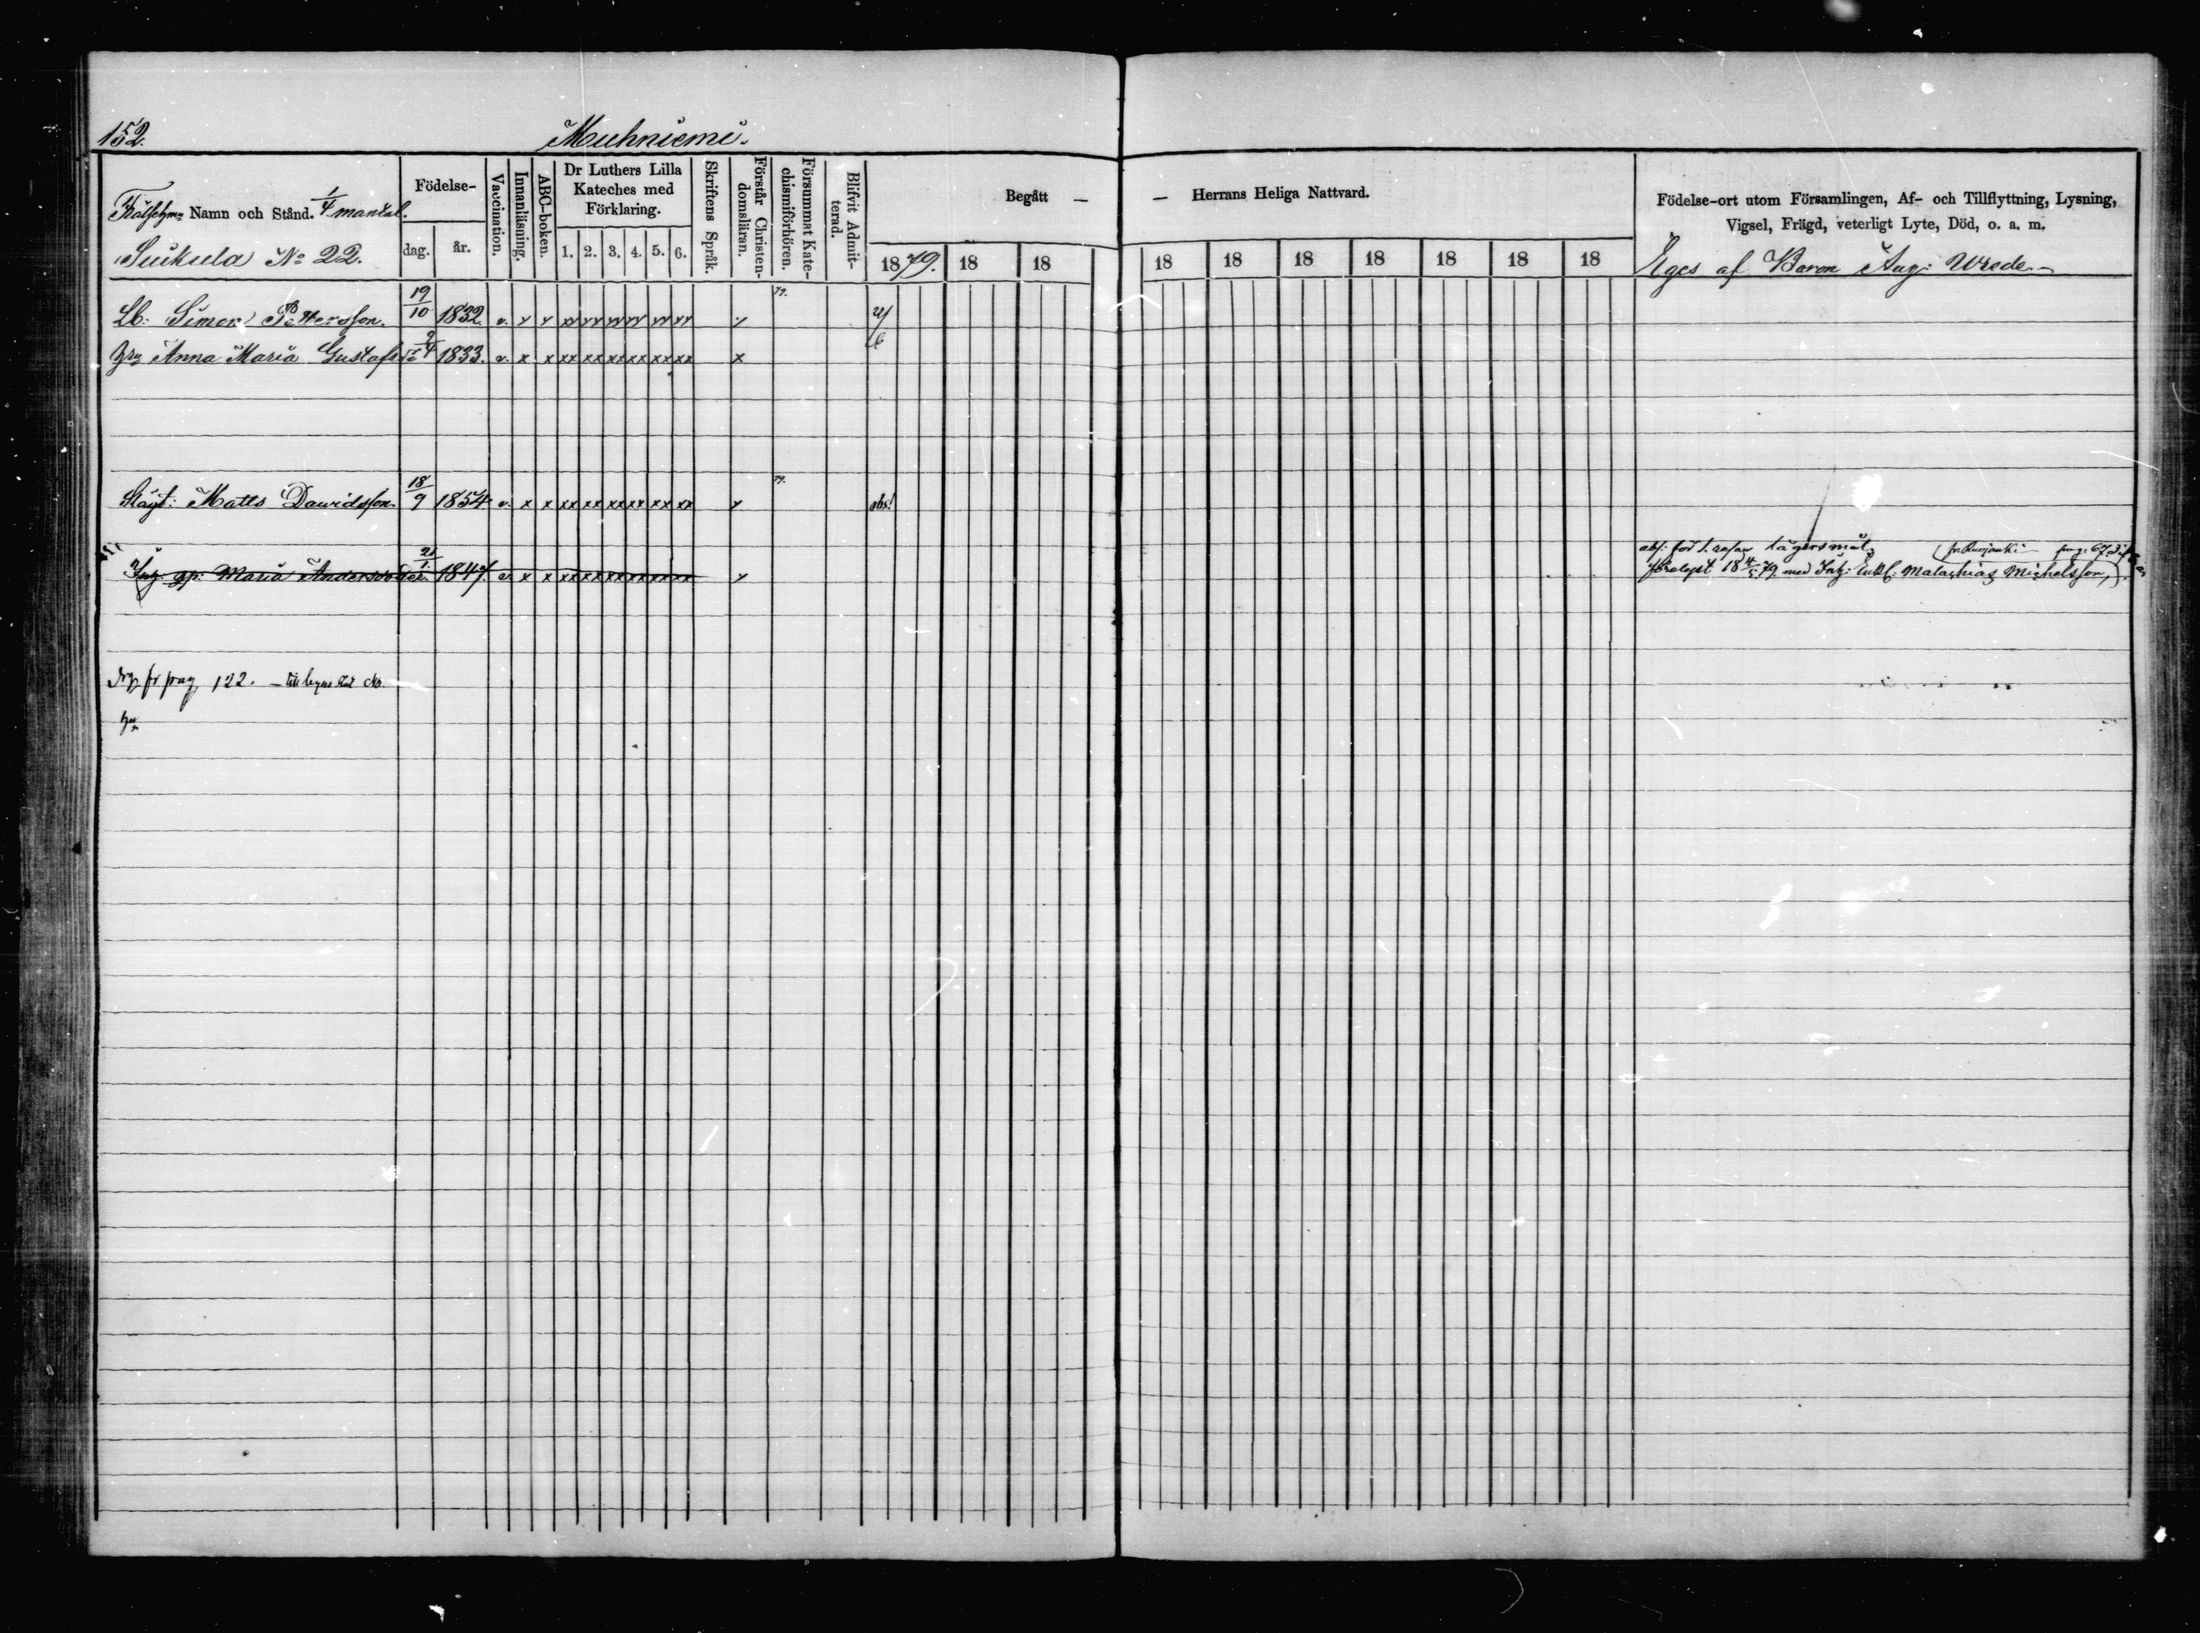 152.
Muhniemi.
Frälsehm: Namn och Stånd. 1/4 mantal.
Suikula No 22.
Födelse-
dag.
år.
Vaccination.
Innanläsning.
ABC-boken.
Dr Luthers Lilla
Kateches med
Förklaring.
1. 2. 3. 4. 5. 6.
Skriftens Språk.
Förstår Christen-
domsläran.
Försummat Kate-
chismiförhören.
Blifvit Admit-
terad.
Begått —
— Herrans Heliga Nattvard.
1879. 18 18 18 18 18 18 18 18 18
Födelse-ort utom Församlingen, Af- och Tillflyttning, Lysning,
Vigsel, Frägd, veterligt Lyte, Död, o. a. m.
Eges af Baron Aug: Wrede.
Lb. Simon Pettersson. 19/10 1832. v. x x xx xx xx xx xx xx x 79.
Anna Maria Gustafs 1833. v. x x xx xx xx xx xx xx x
Matts Davidsson. 18/9 1854 v. x x xx xx xx xx xx xx x 79. abs!
Maria Andersdotter. 21/1 1847. v. x x xx xx xx xx xx xx x
lägersmål,
79 med Inh: Enkl: Malachias Michelsson,
pag 122.